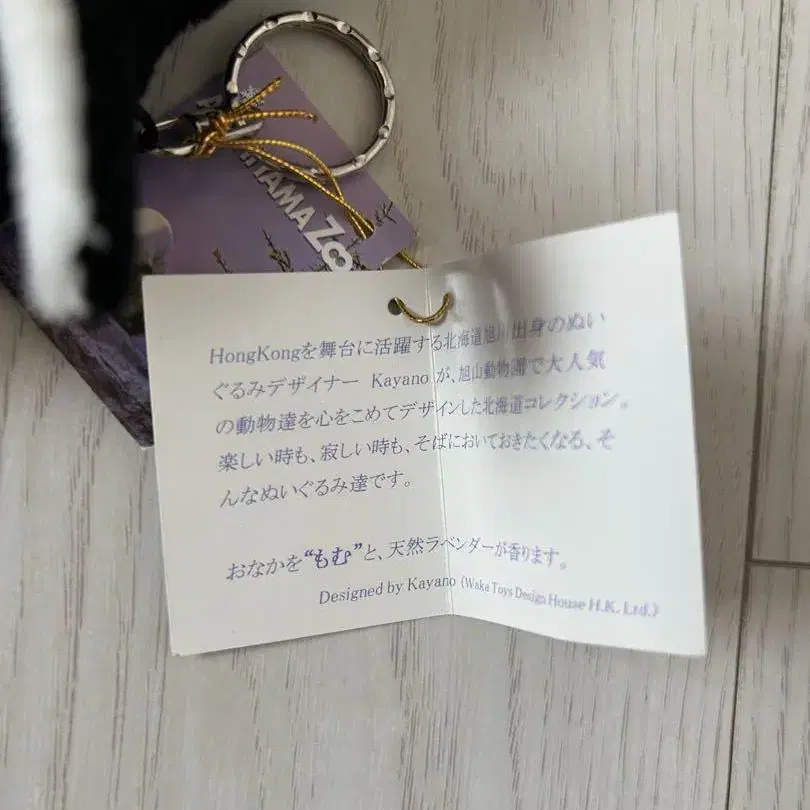 HAMA ZOO
HongKongを舞台に活躍する北海道旭川出身のぬい
ぐるみデザイナー Kayano が、旭山動物園で大人気
の動物達を心をこめてデザインした北海道コレクション。
楽しい時も、寂しい時も、そばにおいておきたくなる、そ
んなぬいぐるみ達です。
おなかを“もむ”と、天然ラベンダーが香ります。
Designed by Kayano (Waka Toys Design House H.K. Ltd.)